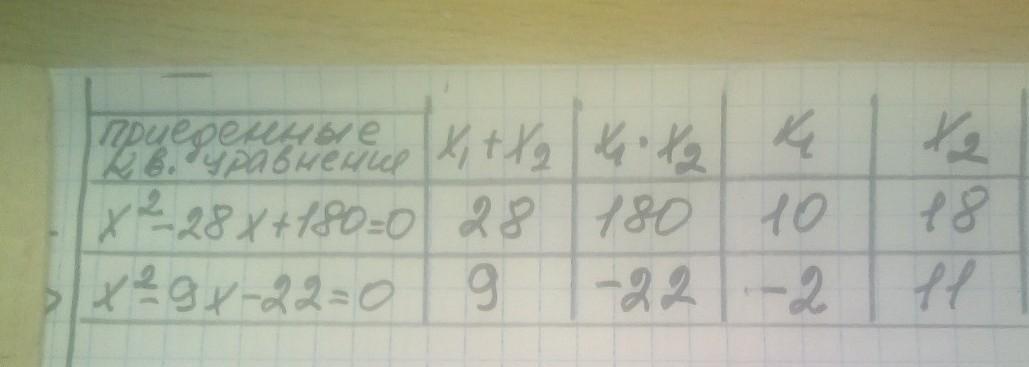 приеденные
кв. уравнения
x₁+x₂
x₁·x₂
x₁
x₂
x²-28x+180=0
28
180
10
18
x²-9x-22=0
9
-22
-2
11